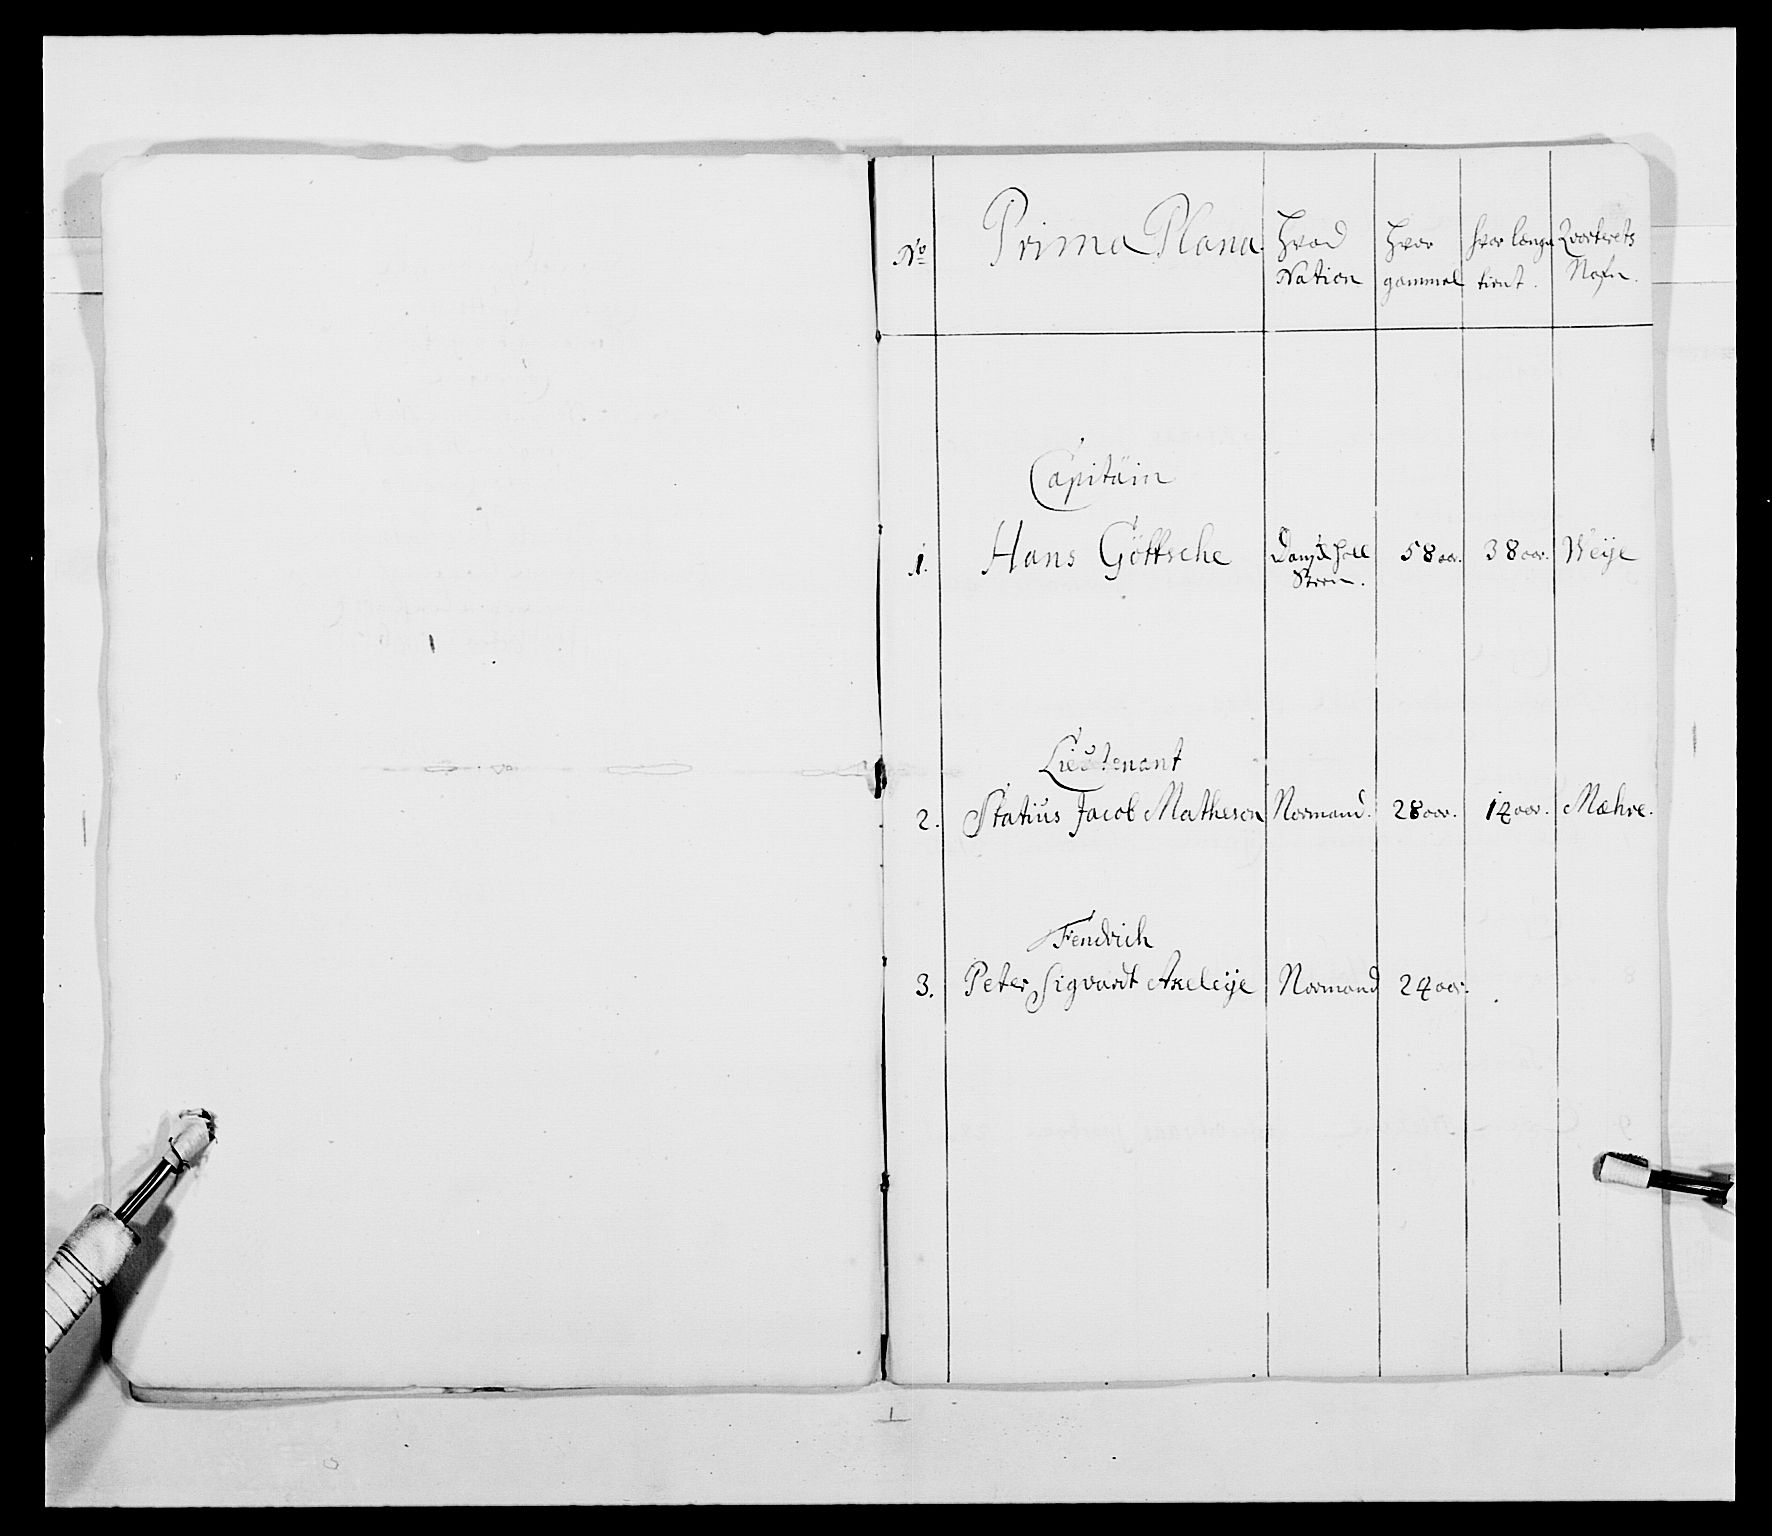 No Prima Plana Hvad Nation Hvor gammel hvor lenge tient. Qvarterets Nafn.
Capitäin
1. Hans Göttsche Holl Steen. 58 aar. 38 aar. Weije
Lieutenant
2. Statius Jacob Matheson Normand. 28 aar. 14 aar. Mæhre.
Fendrich
3. Peter Sigvardt Axeleije Normand 24 aar.